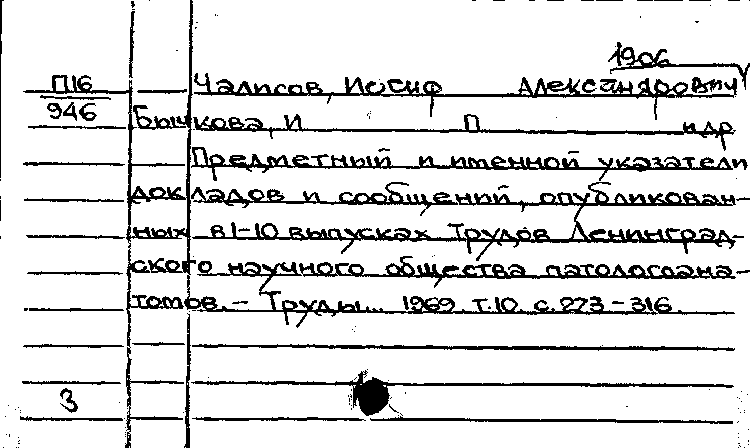 1906
П16 Чалисов, Иосиф Александрович
946 Бычкова, И П и др
Предметный и именной указатели
докладов и сообщений, опубликован-
ных в 1-10 выпусках Трудов Ленинград-
ского научного общества патологоана-
томов. - Труды... 1969. т.10. с.273-316.
3